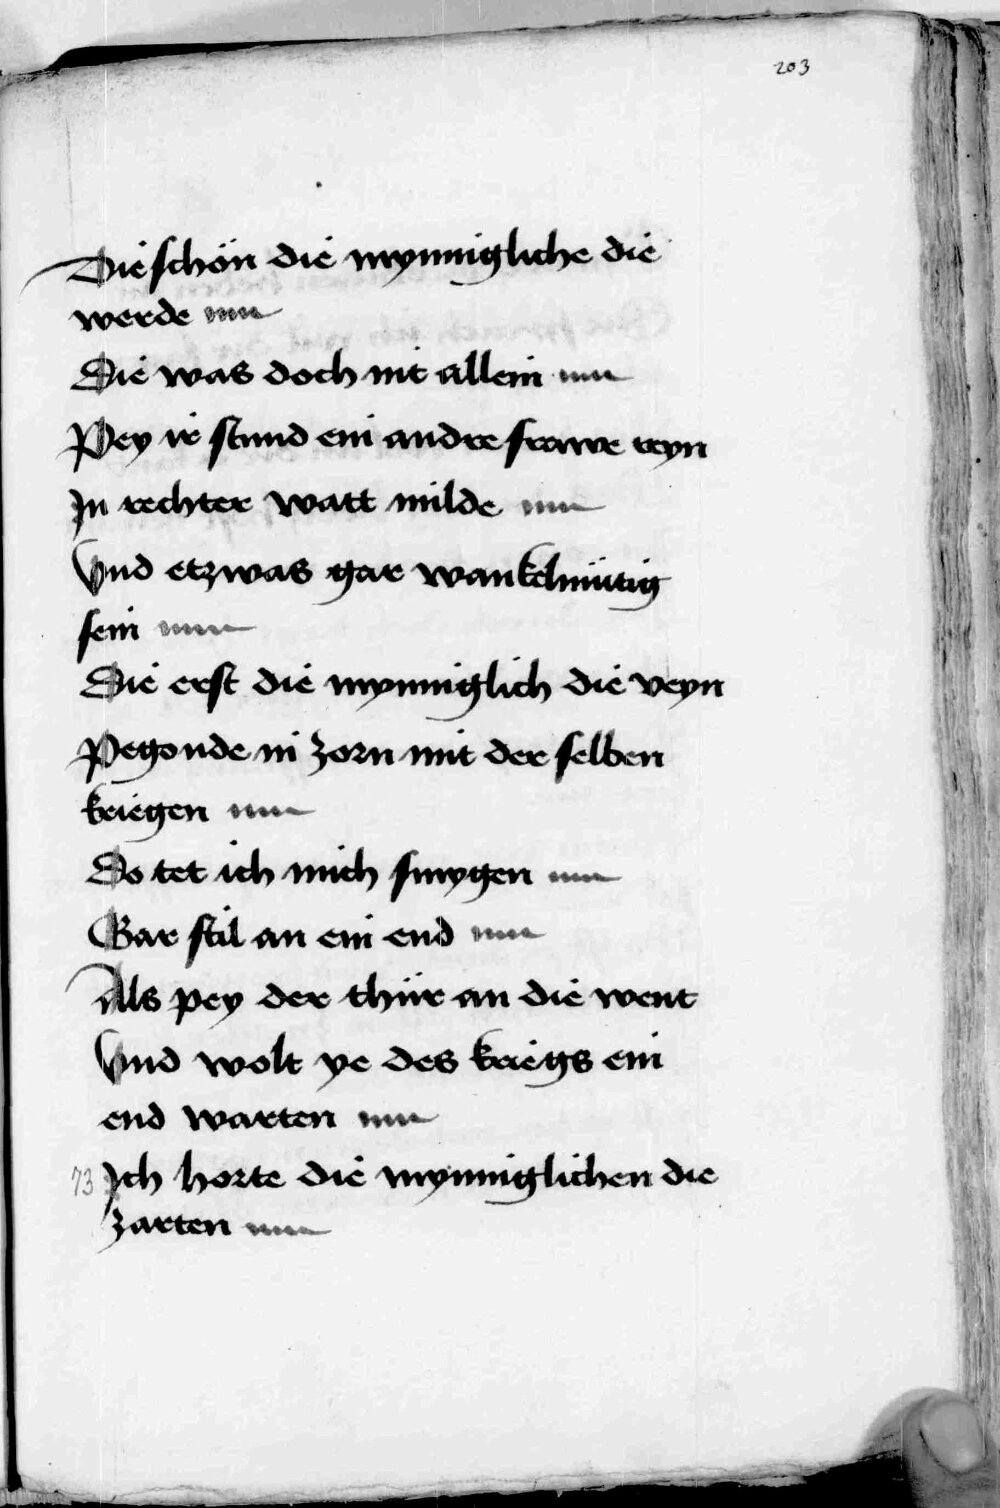 203
Die schön die mynnigliche die
werde
Die was doch nit allein
Pey ir stund ein andre frawe reyn
In rechter watt milde
Vnd etzwas gar wankelmütig
sein
Die erst die mynniglich die veyn
Pegonde in zorn mit der selben
kriegen
Do tet ich mich smygen
Gar stil an ein end
Als pey der thür an die went
Vnd wolt ye des kriegs ein
end warten
73 Ich horte die mynniglichen die
zarten